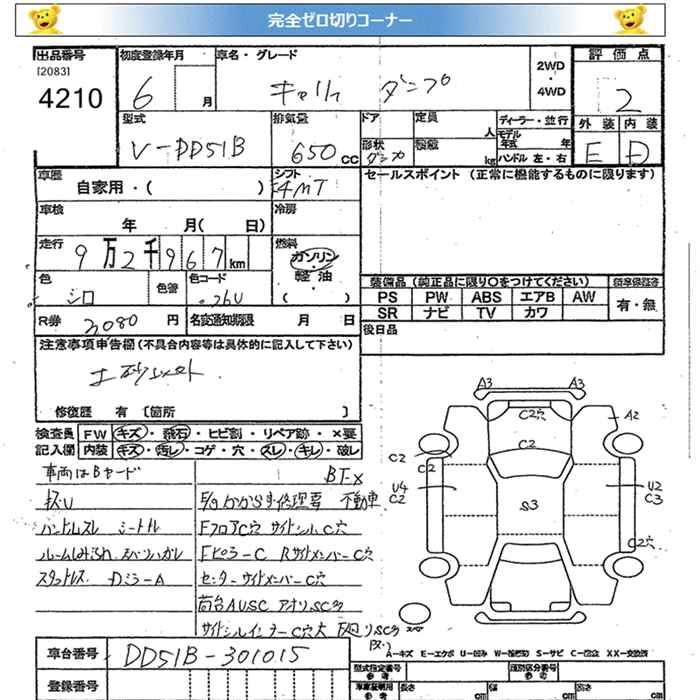 完全ゼロ切りコーナー
出品番号 初度登録年月 車名・グレード 2WD 評価点
[2083]
4210 6 月 キャリィ ダンプ ・4WD 2
型式 排気量 ドア 定員 ディーラー・並行 外装 内装
V-DD51B 650 CC 形状 ダンプ 人 モデル年式 年 E D
積載 kg ハンドル 左・右
車歴 自家用・( ) シフト 4MT セールスポイント (正常に機能するものに限ります)
車検 年 月( 日) 冷房
走行 9万2千967km 燃料 ガソリン・軽油 ( )
色 シロ 色替 色コード 26U
装備品 (純正品に限り○をつけてください)
PS PW ABS エアB AW 有・無
SR ナビ TV カワ
R券 円 名変通知期限 月 日 後日品
注意事項申告欄 (不具合内容等は具体的に記入して下さい)
修復歴 有 [箇所 ]
検査員 FW キズ・飛石・ヒビ割・リペア跡・×要
記入欄 内装 キズ・汚レ・コゲ・穴・スレ・キレ・破レ
車両はBヤード BT-X
E/gかからず修理要 不動車
ハンドルスレ シートル
FフロアC穴 サイドシルC穴
FピラーC RサイドメンバーC穴
スタットレス Dミラー A
センターサイドメンバーC穴
荷台AUSC アオリSC多
サイドシルインナーC穴大
A3 A3
C2穴 A2
C2 C2
C2
U4 C2 S3 U2 C3
C2穴
スペア
A-キズ E-エクボ U-凹み W-補修跡 S-サビ C-腐食 XX-交換済
車台番号 DD51B-301015 型式指定番号 参考 類別区分番号 参考
登録番号 車庫証明用 参考 長さ cm 幅 cm 高さ cm